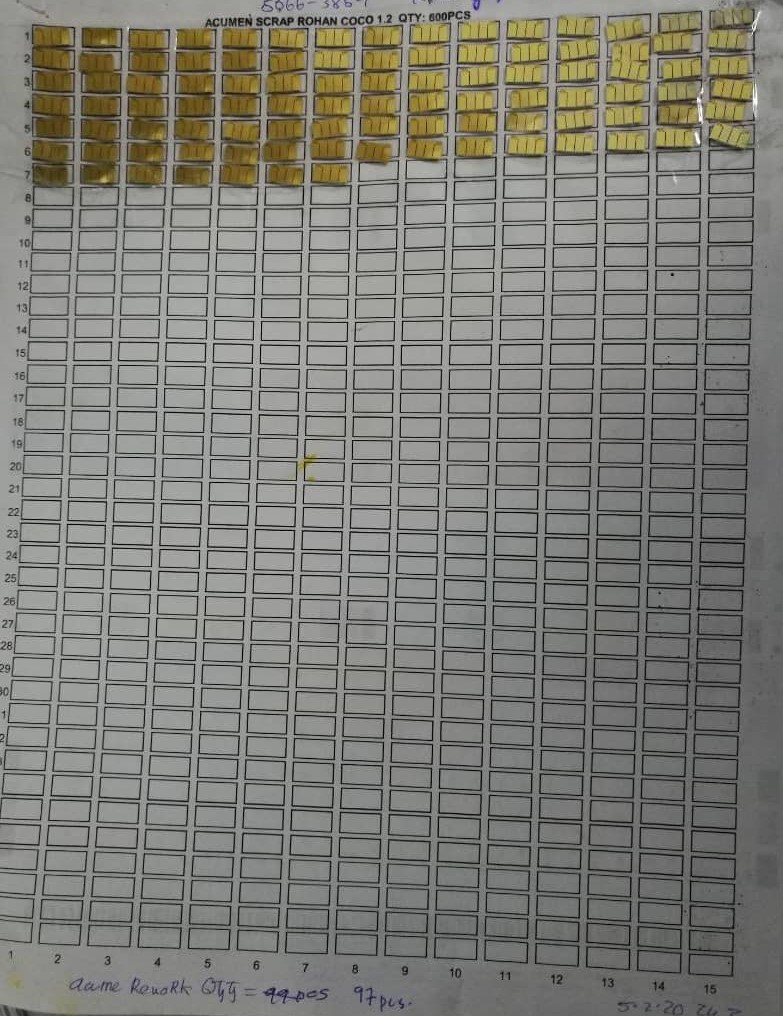 ACUMEN SCRAP ROHAN COCO 1.2 QTY: 600PCS
1
2
3
4
5
6
7
8
9
10
11
12
13
14
15
16
17
18
19
20
21
22
23
24
25
26
27
28
29
30
1
2
1 2 3 4 5 6 7 8 9 10 11 12 13 14 15
Rework Qty = 99pcs 97pcs.